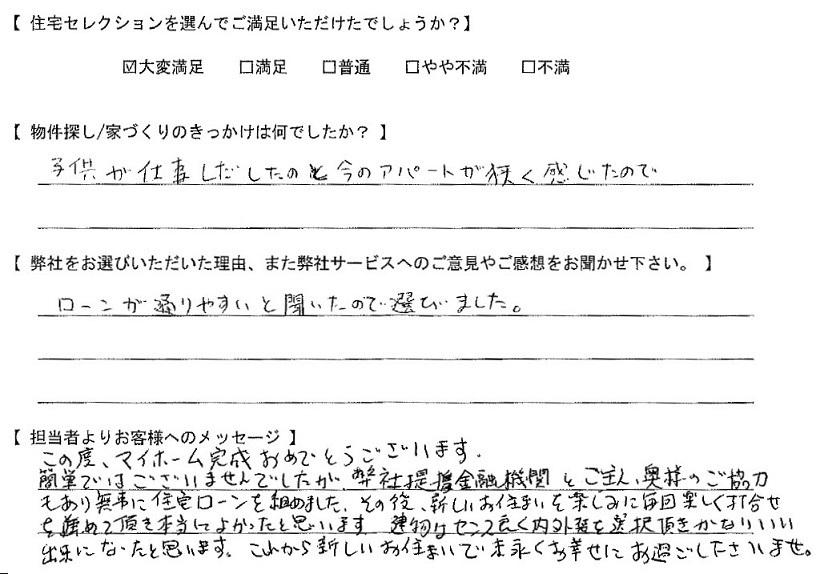 【 住宅セレクションを選んでご満足いただけたでしょうか?】
☑大変満足 □満足 □普通 □やや不満 □不満
【 物件探し/家づくりのきっかけは何でしたか? 】
子供が仕事しだしたのと今のアパートが狭く感じたので
【 弊社をお選びいただいた理由、また弊社サービスへのご意見やご感想をお聞かせ下さい。 】
ローンが通りやすいと聞いたので選びました。
【 担当者よりお客様へのメッセージ 】
この度、マイホーム完成おめでとうございます。
簡単ではございませんでしたが、弊社提携金融機関とご主人、奥様のご協力
もあり無事に住宅ローンを組めました。その後、新しいお住まいを楽しみに毎回楽しく打合せ
を進めて頂き本当によかったと思います 建物はセンス良く内外装を選択頂きかなりいい
出来になったと思います。これから新しいお住まいで末永くお幸せにお過ごしくださいませ。